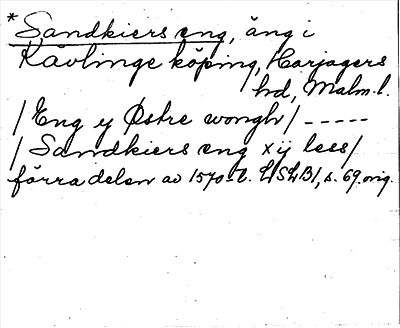 *Sandkiers eng, äng i
Kävlinge köping, Harjagers
hd, Malm. l.
/Eng y Østre wongh/ -----
/Sandkiers eng xij less/
förra delen av 1570-t. LSLB1, s. 69 orig.